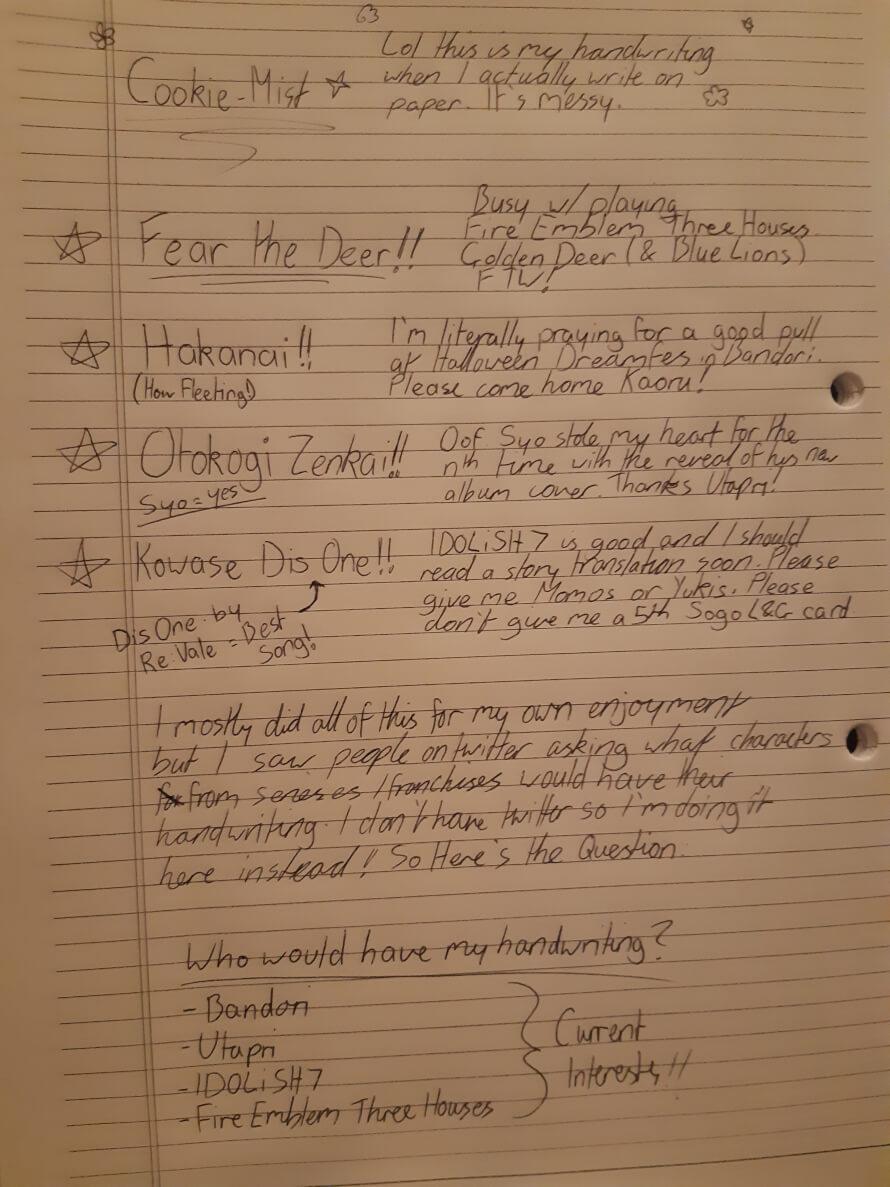 63
Cookie-Mist
Lol this is my handwriting
when I actually write on
paper. It's messy.
Fear the Deer!!
Busy w/ playing
Fire Emblem Three Houses
Golden Deer (& Blue Lions)
FTW!
Hakanai!!
(How Fleeting!)
I'm literally praying for a good pull
at Halloween Dreamfes in Bandori.
Please come home Kaoru!
Otokogi Zenkai!!
Syo = yes
Oof Syo stole my heart for the
nth time with the reveal of his new
album cover. Thanks Utapri!
Kowase Dis One!!
Dis One by
Re:Vale = Best
Song!
IDOLiSH7 is good and I should
read a story translation soon. Please
give me Momos or Yukis. Please
don't give me a 5th Sogo L&G card
I mostly did all of this for my own enjoyment
but I saw people on twitter asking what characters
from sereses / franchises would have their
handwriting. I don't have twitter so I'm doing it
here instead! So Here's the Question.
Who would have my handwriting?
- Bandori
- Utapri
- IDOLiSH7
- Fire Emblem Three Houses
Current
Interests!!